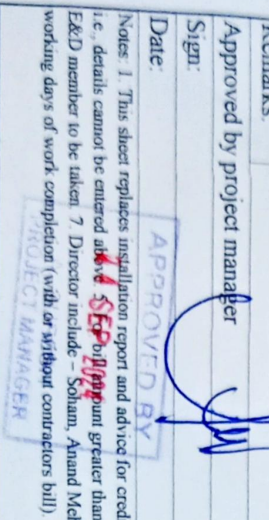 Remarks:
Approved by project manager
Sign:
Date:
APPROVED BY
SEP
PROJECT MANAGER
Notes: 1. This sheet replaces installation report and advice for cred
i.e., details cannot be entered above. 5. For bill amount greater than
E&D member to be taken. 7. Director include – Soham, Anand Meh
working days of work completion (with or without contractors bill).